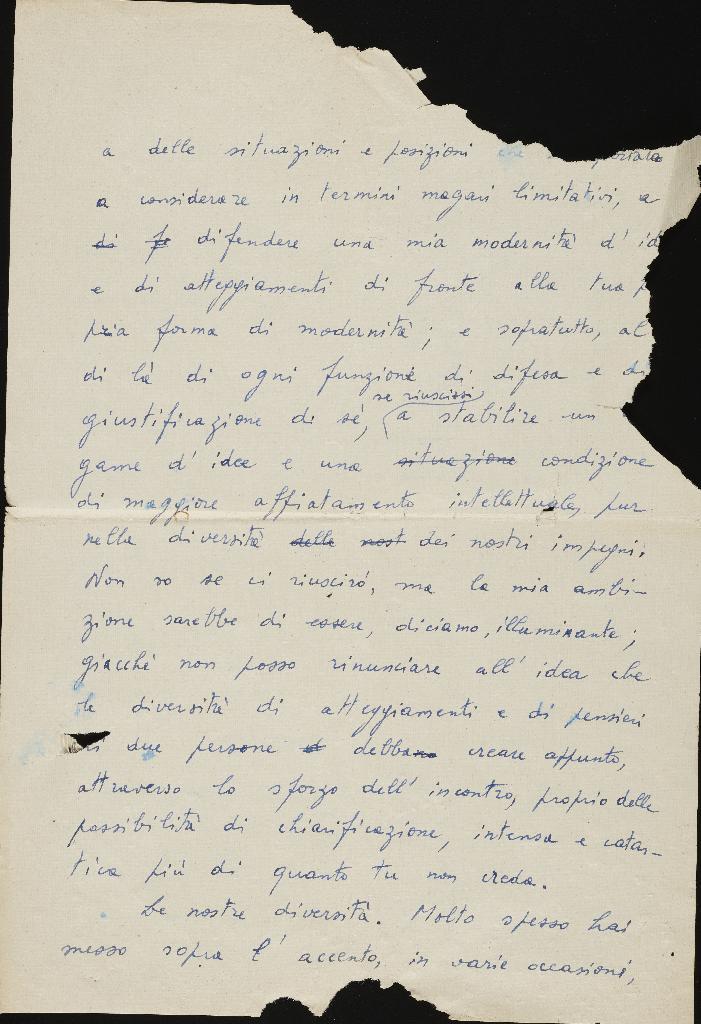 a delle situazioni e posizioni che
a considerare in termini magari limitativi, a
di fe difendere una mia modernità d' id
e di atteggiamenti di fronte alla tua p
pria forma di modernità; e sopratutto, al
di là di ogni funzione di difesa e di
se riuscissi
giustificazione di sé, a stabilire un
game d' idee e una situazione condizione
di maggiore affiatamento intellettuale, pur
nella diversità delle nost dei nostri impegni.
Non so se ci riuscirò, ma la mia ambi-
zione sarebbe di essere, diciamo, illuminante;
giacché non posso rinunciare all' idea che
le diversità di atteggiamenti e di pensieri
di due persone d debbano creare appunto,
attraverso lo sforzo dell' incontro, proprio delle
possibilità di chiarificazione, intensa e catar-
tica più di quanto tu non creda.
Le nostre diversità. Molto spesso hai
messo sopra l' accento, in varie occasioni,